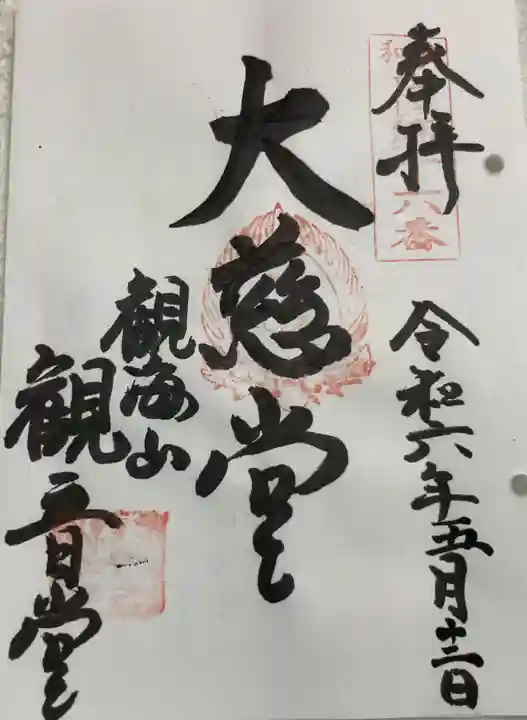 奉拝
六番
令和六年五月十二日
大慈堂
観海山
観音堂